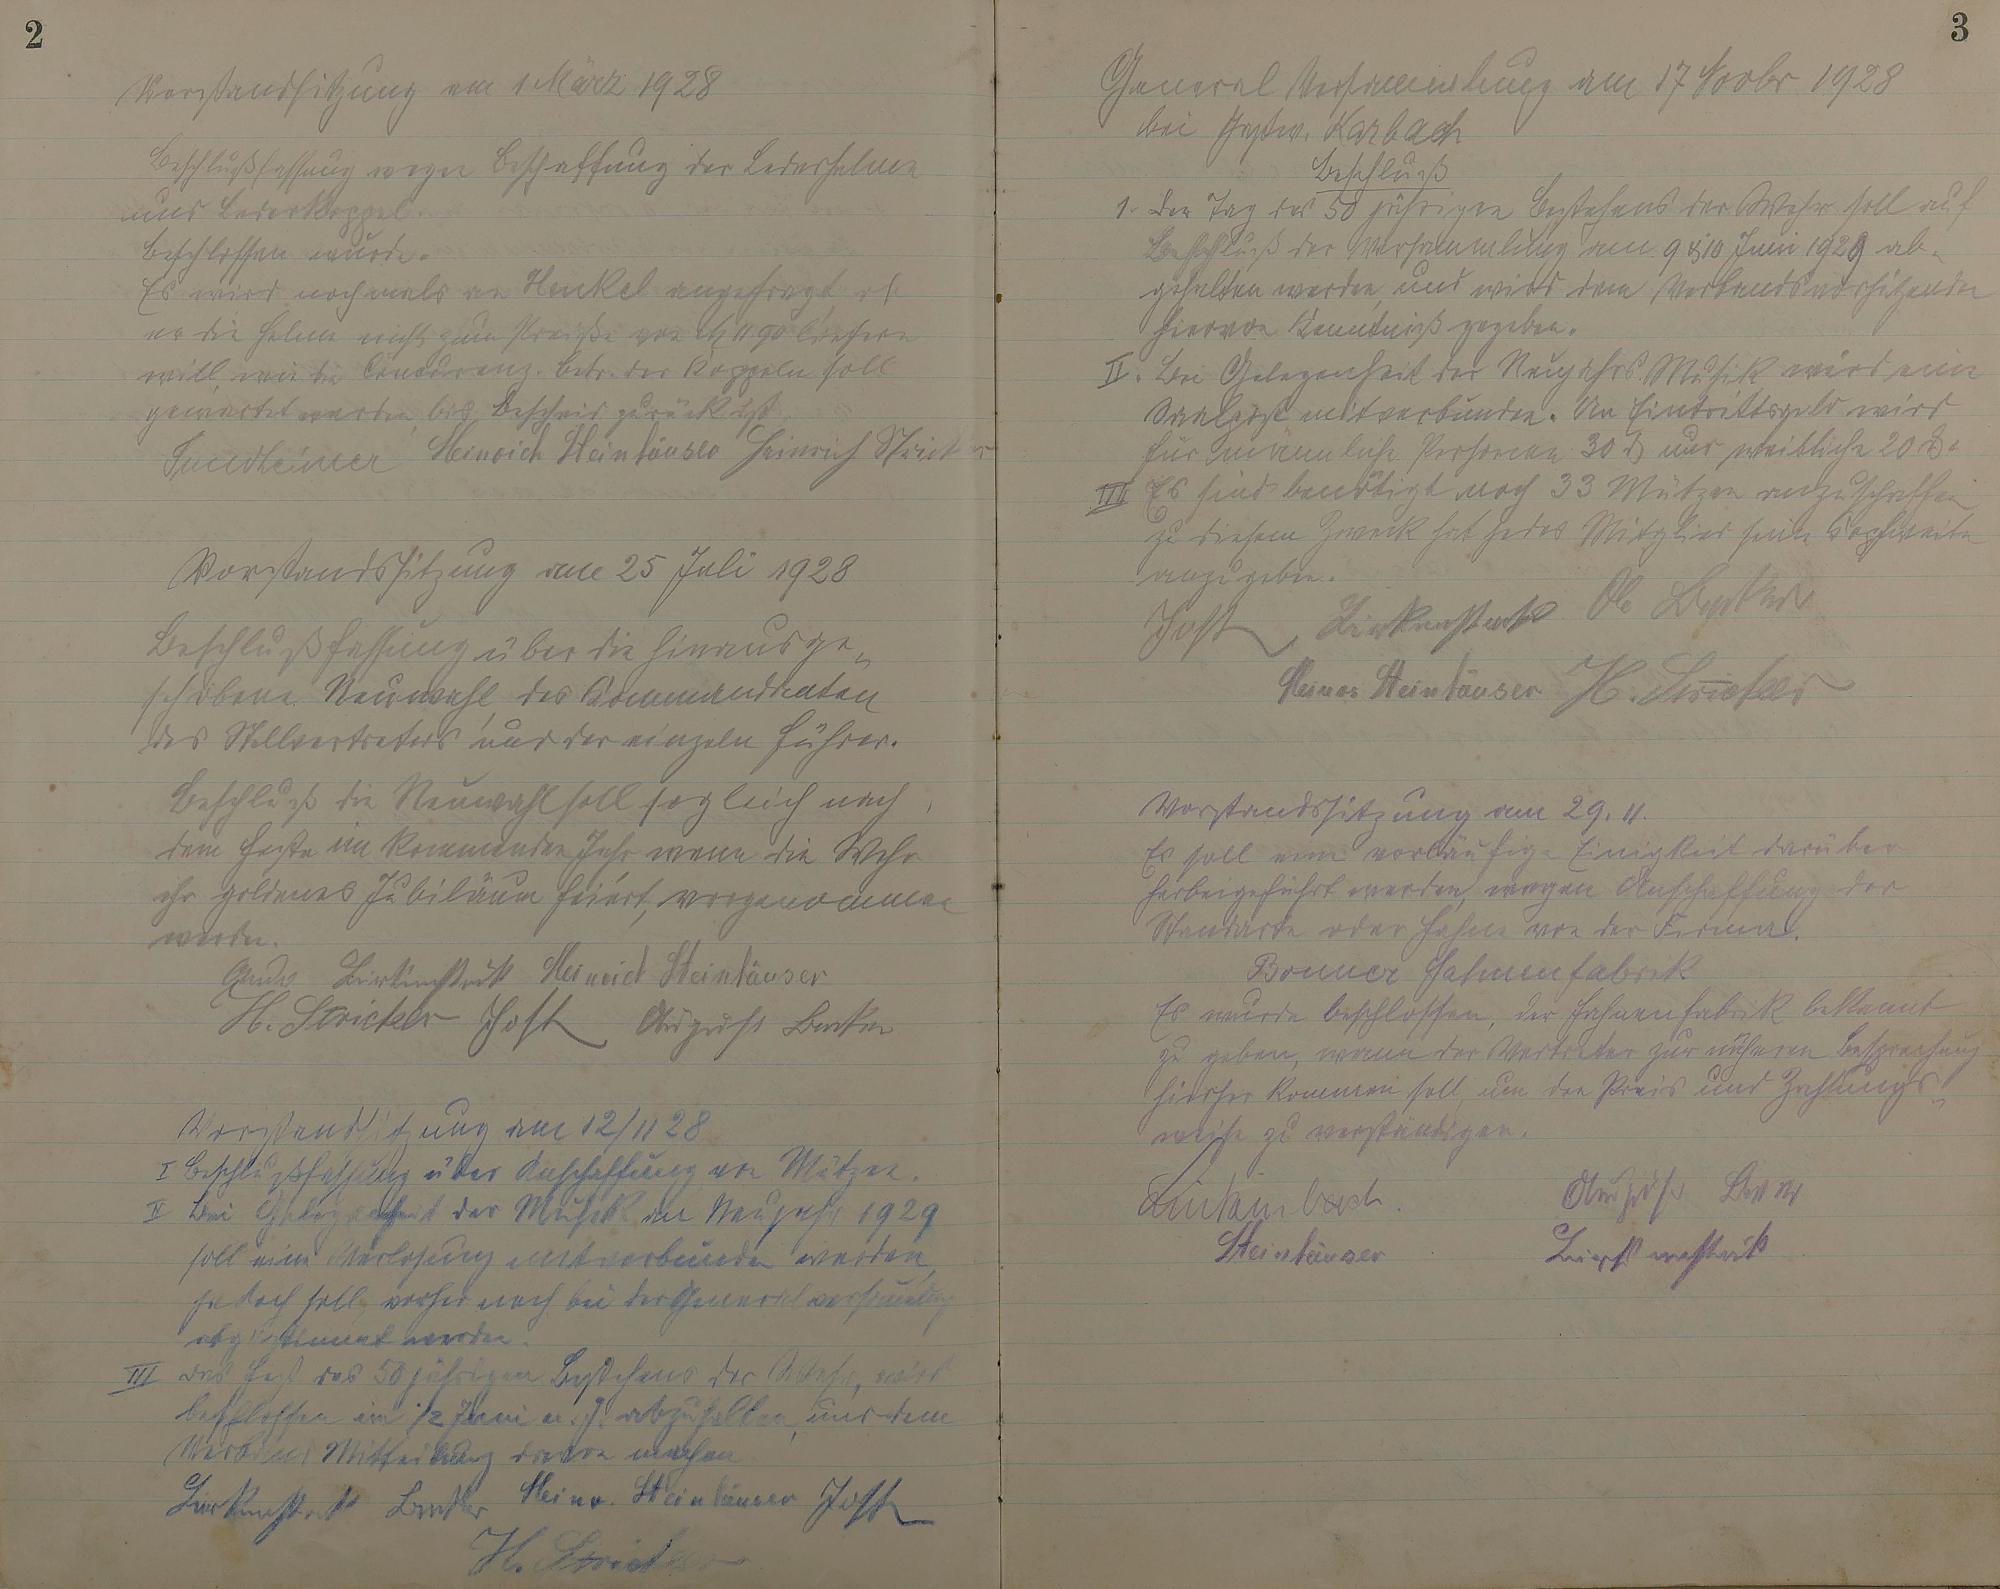 2
Vorstandsitzung am 1 März 1928
Beschlußfassung wegen Beschaffung der Lederhelme
und Lederkoppel.
Beschlossen wurde.
Es wird nochmals an Henkel angefragt ob
er die Helme nicht zum Preiße von M 11 90 liefern
will, wie die Concurenz. Betr. der Koppeln soll
gewartet werden, bis Bescheid zurück ist.
Heinrich Steinhäuser Heinrich Stricker
Vorstandssitzung am 25 Juli 1928
Beschlußfassung über die hinausge-
schobene Neuwahl des Kommandanten
des Stellvertreters und der einzeln Führer.
Beschluß die Neuwahl soll sogleich nach
dem Feste im kommenden Jahr wenn die Wehr
ihr goldenes Jubiläum feiert, vorgenommen
werden.
Heinrich Steinhäuser
H. Stricker Jost August Becker
Vorstandsitzung am 12/11 28
I Beschlußfassung über Anschaffung von Mützen.
II Bei Gelegenheit der Musik an Neujahr 1929
soll eine Verlosung mitverbunden werden,
jedoch soll vorher noch bei der Generalversammlung
abgestimmt werden.
III Das Fest des 50 jährigen Bestehens der Wehr, wird
beschlossen im 1/2 Juni n. J. abzuhalten, und dem
Verband Mitteilung davon machen
Heinr. Steinhäuser Jost
H. Stricker
3
General Versammlung am 17 Novbr 1928
bei Gastw. Karbach
Beschluß
1. Der Tag des 50 jährigen Bestehens der Wehr soll auf
Beschluß der Versammlung am 9 & 10 Juni 1929 ab-
gehalten werden, und wird dem Verbandsvorsitzenden
hiervon Kenntniß gegeben.
II. Bei Gelegenheit der Neujahrs Musik wird eine
mitverbunden. An Eintrittsgeld wird
für männliche Personen 30 ₰ und weibliche 20 ₰.
III Es sind benötigt noch 33 Mützen anzuschaffen
zu diesem Zweck hat jedes Mitglied seine Kopfweite
anzugeben.
Jost
Heinr Steinhäuser H. Stricker
Vorstandssitzung am 29. 11.
Es soll eine vorläufige Einigkeit darüber
herbeigeführt werden, wegen Anschaffung der
Standarte oder Fahne von der Firma.
Bonner Fahnenfabrik
Es wurde beschlossen, der Fahnenfabrik bekannt
zu geben, wann der Vertreter zur näheren Besprechung
hierher kommen soll, um den Preis und Zahlungs-
weise zu verständigen.
August
Steinhäuser